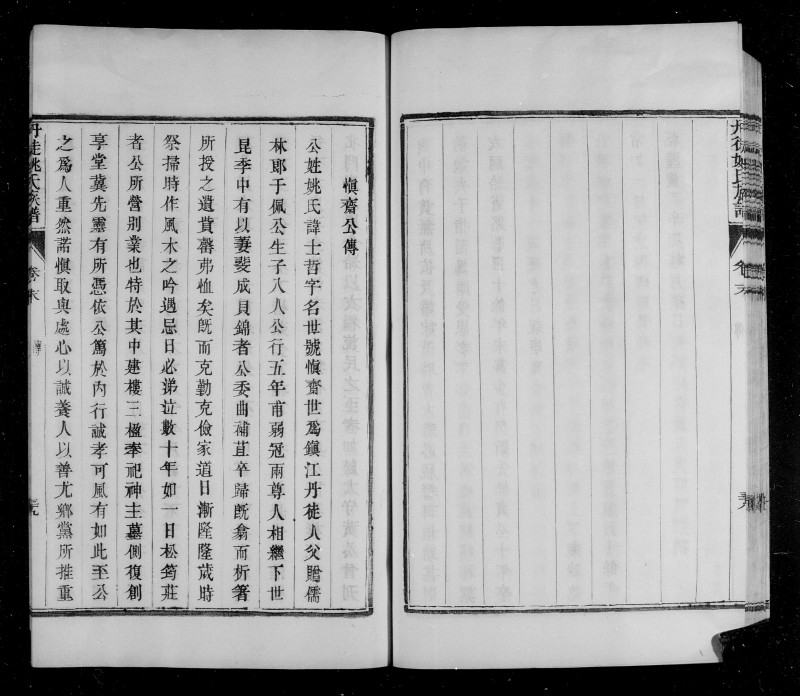 丹徒姚氏族譜
卷末
愼齋公傳
公姓姚氏諱士哲字名世號愼齋世爲鎭江丹徒人父贈儒
林郞于佩公生子八人公行五年甫弱冠兩尊人相繼下世
昆季中有以萋斐成貝錦者公委曲補苴卒歸旣翕而析箸
所授之遺貲罄弗恤矣旣而克勤克儉家道日漸隆隆歲時
祭掃時作風木之吟遇忌日必涕泣數十年如一日松筠莊
者公所營別業也特於其中建樓三楹奉祀神主墓側復創
享堂冀先靈有所憑依公篤於內行誠孝可風有如此至公
之爲人重然諾愼取與處心以誠養人以善尤鄕黨所推重
丹徒姚氏家譜
卷末
傳